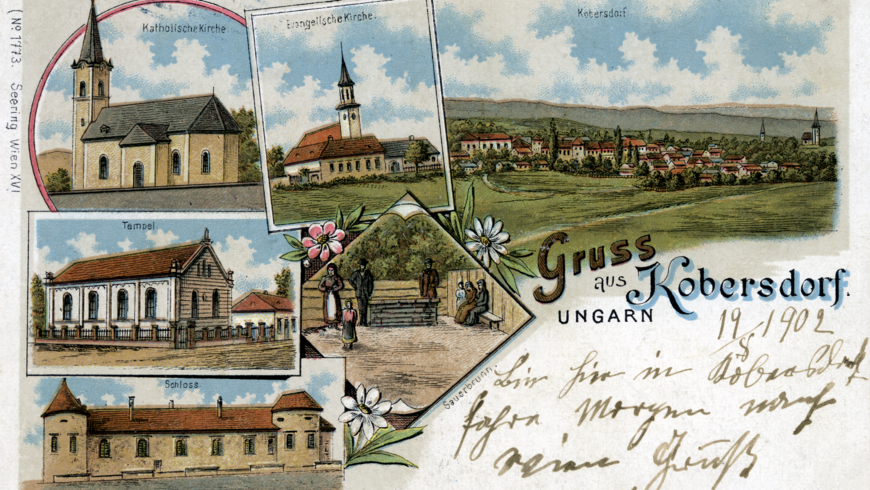 (Nº 1773. Seering Wien XVI.
Katholische Kirche
Evangelische Kirche.
Kobersdorf
Tempel
Gruss
aus Kobersdorf.
UNGARN
Sauerbrunn.
Schloss
19/8 1902
Bin hier in Kobersdorf
fahre Morgen nach
Wien Gruß